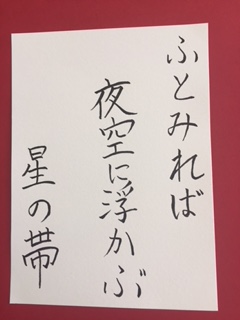 ふとみれば
夜空に浮かぶ
星の帯